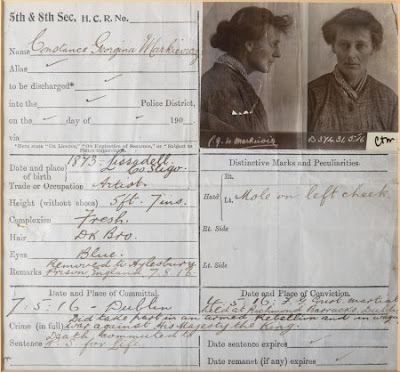 5th & 8th Sec. H. C. R. No.
Name Constance Georgina Markievicz
Alias ✓
to be discharged* ✓
into the ✓ Police District,
on the ✓ day of ✓ 190
via
*Here state "On Licence," "On Expiration of Sentence," or "Subject to
Police Supervision.
Date and place of birth 1873 Lissadell
Co Sligo.
Trade or Occupation Artist
Height (without shoes) 5ft. 7ins.
Complexion Fresh.
Hair Dk Bro.
Eyes Blue.
Remarks Removed to Aylesbury
Prison England 7.8.16
Date and Place of Committal.
7.5.16 - Dublin
Crime (in full) Did take part in an armed rebellion and in
war against His Majesty the King.
Sentence Death, commuted to
P.S for life.
B 374 31.5.16
Ctm
Distinctive Marks and Peculiarities.
Head
Rt.
Lt. Mole on left cheek.
Rt. Side
Lt. Side
Date and Place of Conviction.
4.5.16; F. G. Court-martial
held at Richmond Barracks, Dublin
Date sentence expires ✓
Date remanet (if any) expires ✓